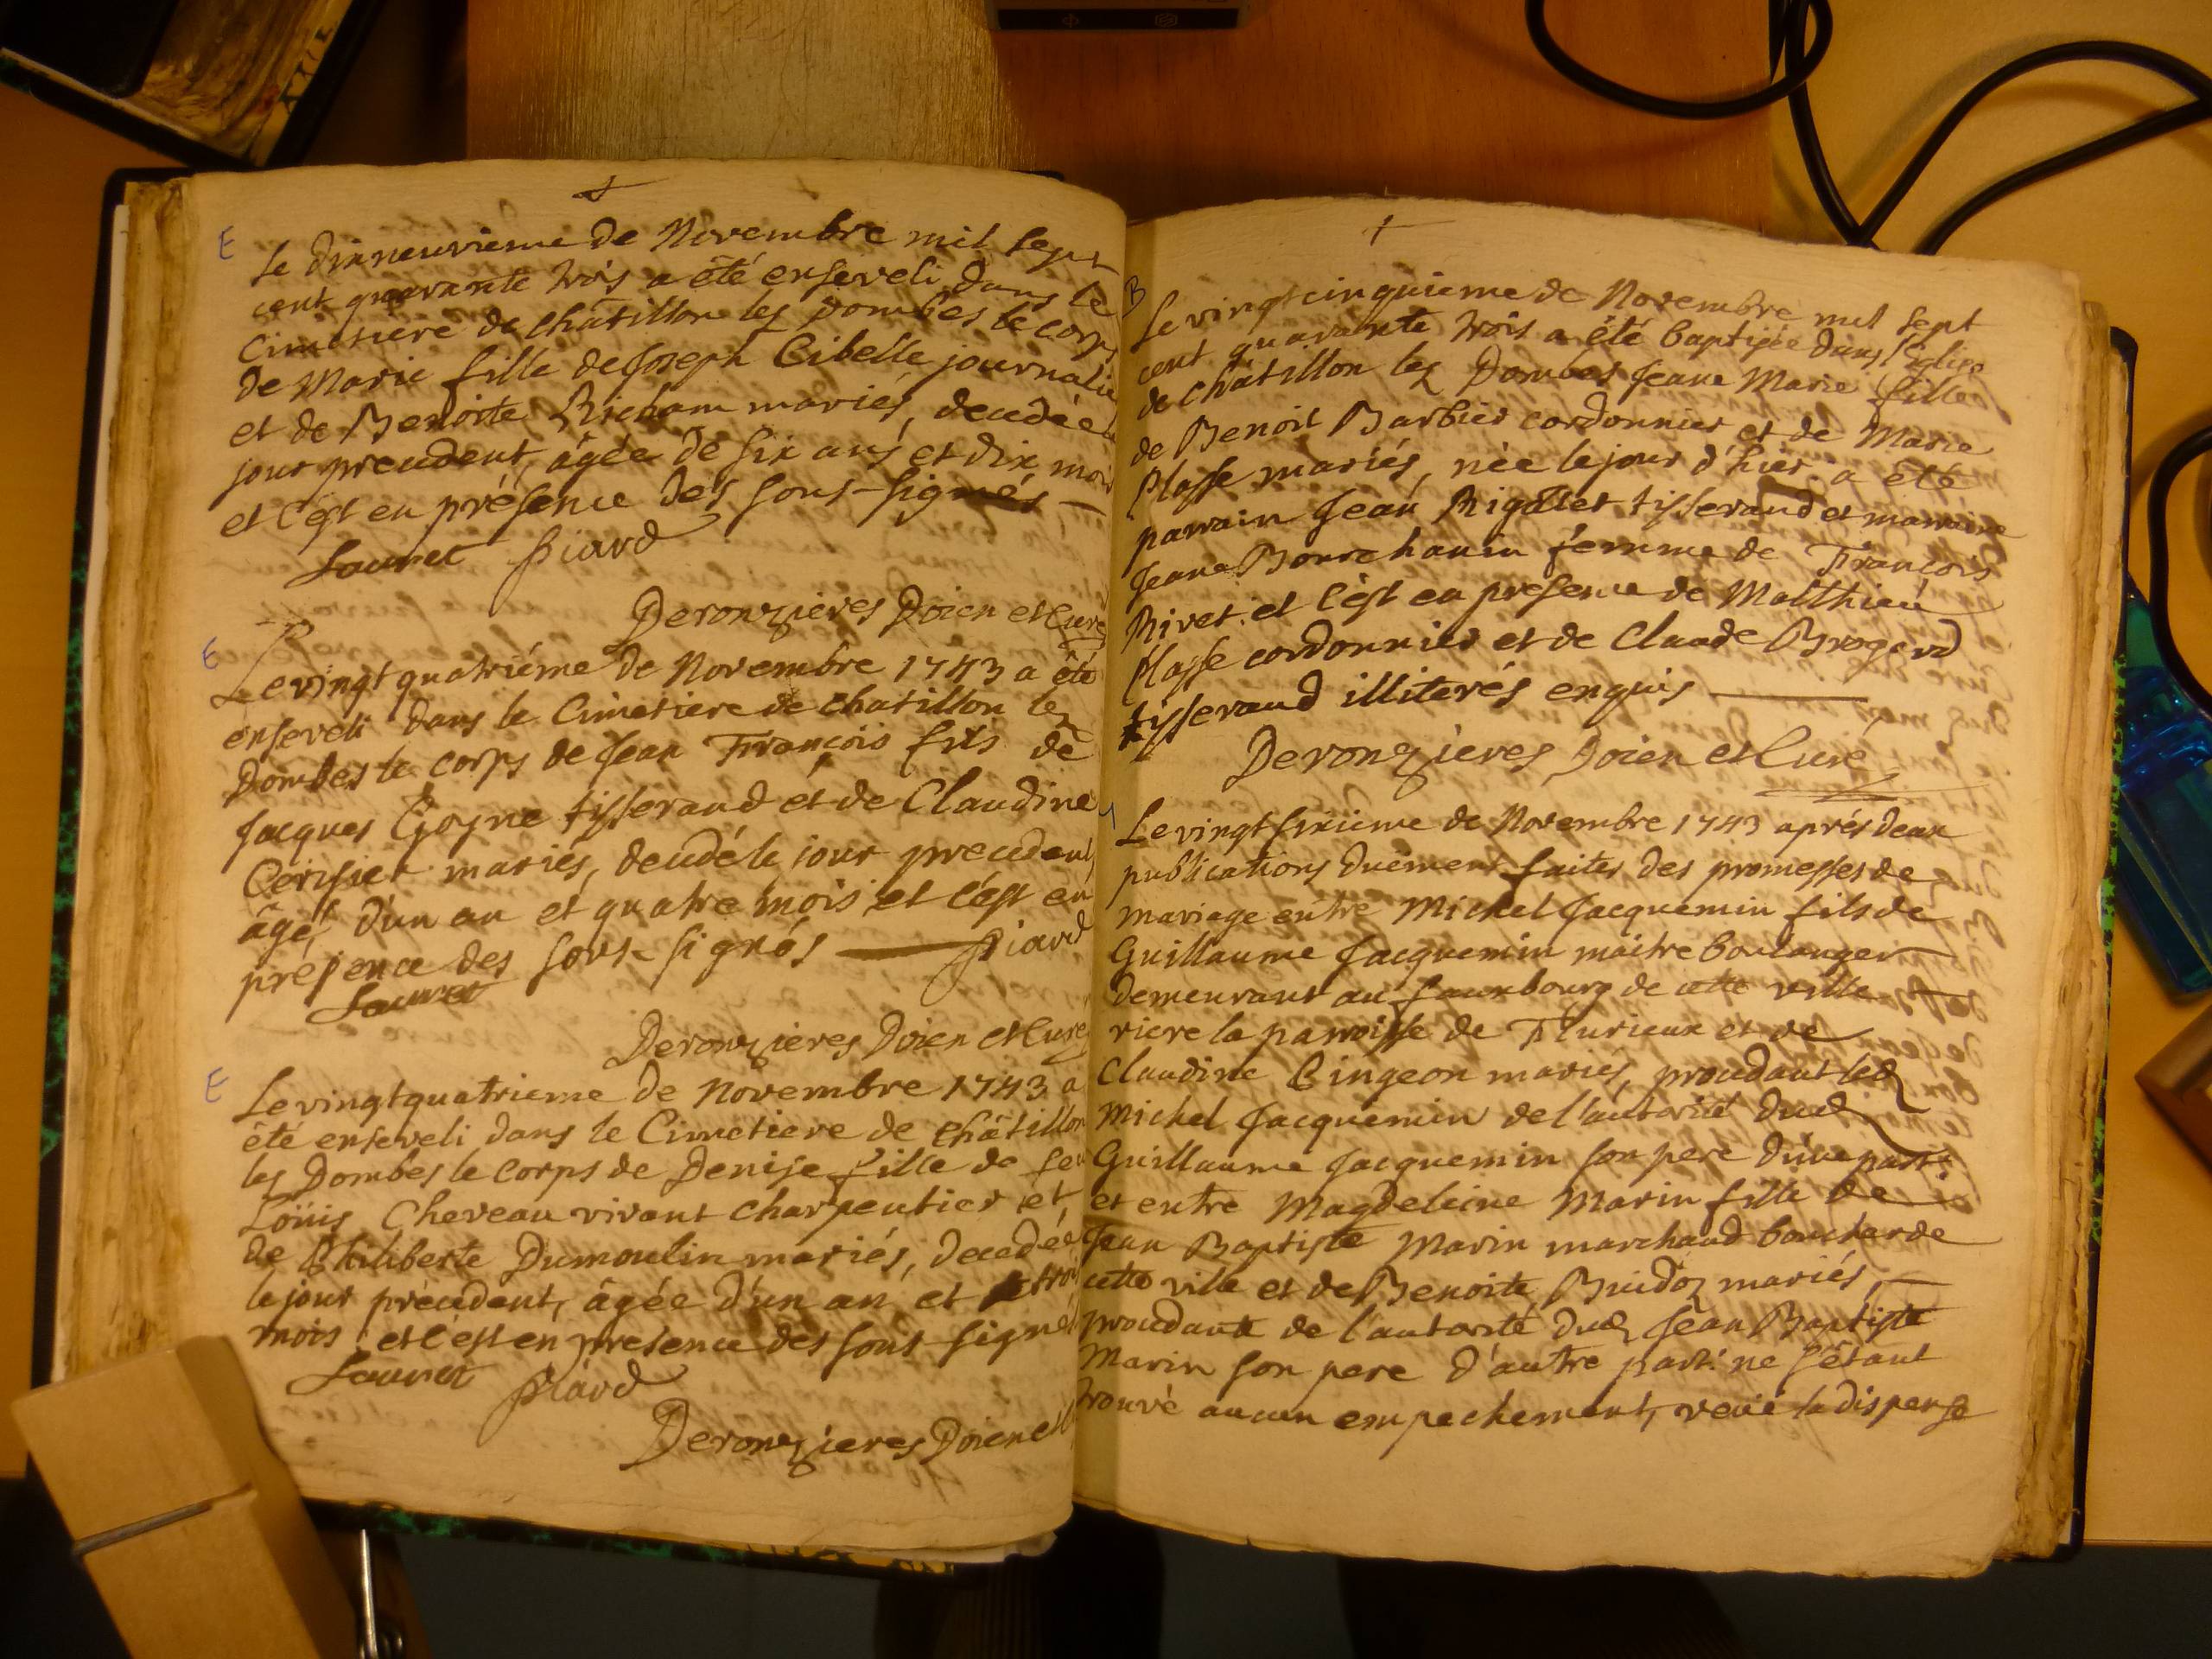 E
Le dixneuvieme de Novembre mil sept
cent quarante trois a été enseveli dans le
Cimetiere de châtillon les Dombes le corps
de Marie fille de Joseph Cibelle journalie
et de Benoite Richam mariés, decedée le
jour precedent, âgée de six ans et dix mois
et c'est en présence des sous-signés
Lauret Piard
Deronzieres Doien et Curé
E
Le vingt quatriéme de Novembre 1743 a été
enseveli dans le Cimetiere de chatillon lez
Dombes le corps de Jean François fils de
Jacques Goyne tisserand et de Claudine
Cerisier mariés, decedé le jour precedent
âgé, d'un an et quatre mois et c'est en
présence des sous-signés Piard
Lauret
Deronzieres Doien et Curé
E
Le vingtquatrieme de Novembre 1743 a
été enseveli dans le Cimetiere de châtillon
les Dombes le corps de Denise fille de feu
Loüis Cheveau vivant charpentier et
de Philiberte Dumoulin mariés, decedée
le jour précedent, âgée d'un an et trois
mois et c'est en presence des sous-signés
Lauret Piard
Deronzieres Doien et
B
Le vingtcinquieme de Novembre mil sept
cent quarante trois a été baptisée dans l'Eglise
de châtillon lez Dombes Jeane Marie fille
de Benoit Barbier cordonnier et de Marie
Plasse mariés, née le jour d'hier a été
parrain Jean Rigollet tisserand et marraine
Jeane Bourchanin femme de François
Rivet. et c'est en presence de Matthieu
Plasse cordonnier et de Claude Brogard
tisserand illiterés enquis
Deronzieres Doien et Curé
Le vingtsixieme de Novembre 1743 aprés deux
publications duëment faites des promesses de
mariage entre Michel Jacquemin fils de
Guillaume Jacquemin maitre boulanger
demeurant au fauxbourg de cette ville
riere la parroisse de Flurieux et de
Claudine Pingeon mariés, procedant led
Michel Jacquemin de l'autorité dud
Guillaume Jacquemin son pere d'une part:
et entre Magdeleine Marin fille de
Jean Baptiste Marin marchand boucher de
cette ville et de Benoite Buidoz mariés,
procedante de l'autorité dud Jean Baptiste
Marin son pere d'autre part: ne s'étant
trouvé aucun empechement, veüe la dispense